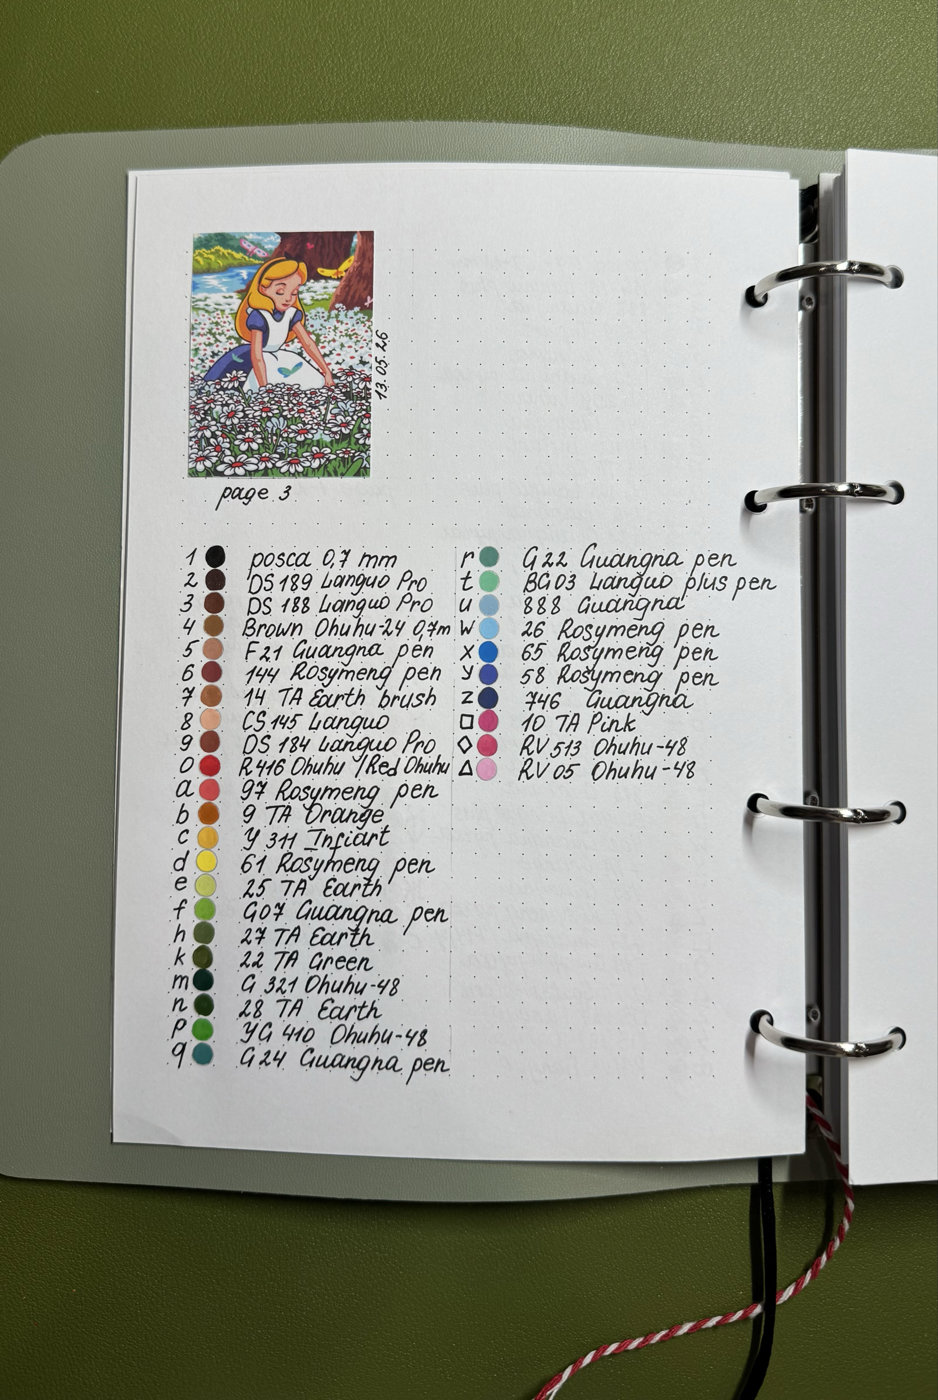 13.05.26
page 3
1 posca 0,7 mm
2 DS 189 Languo Pro
3 DS 188 Languo Pro
4 Brown Ohuhu-24 0,7m
5 F21 Guangna pen
6 144 Rosymeng pen
7 14 TA Earth brush
8 CS 145 Languo
9 DS 184 Languo Pro
0 R416 Ohuhu /Red Ohuhu
a 97 Rosymeng pen
b 9 TA Orange
c Y 311 Infiart
d 61 Rosymeng pen
e 25 TA Earth
f G07 Guangna pen
h 27 TA Earth
k 22 TA Green
m G 321 Ohuhu-48
n 28 TA Earth
p YG 410 Ohuhu-48
q G24 Guangna pen
r G22 Guangna pen
t BG03 Languo plus pen
u 888 Guangna
w 26 Rosymeng pen
x 65 Rosymeng pen
y 58 Rosymeng pen
z 746 Guangna
□ 10 TA Pink
◇ RV 513 Ohuhu-48
△ RV 05 Ohuhu-48